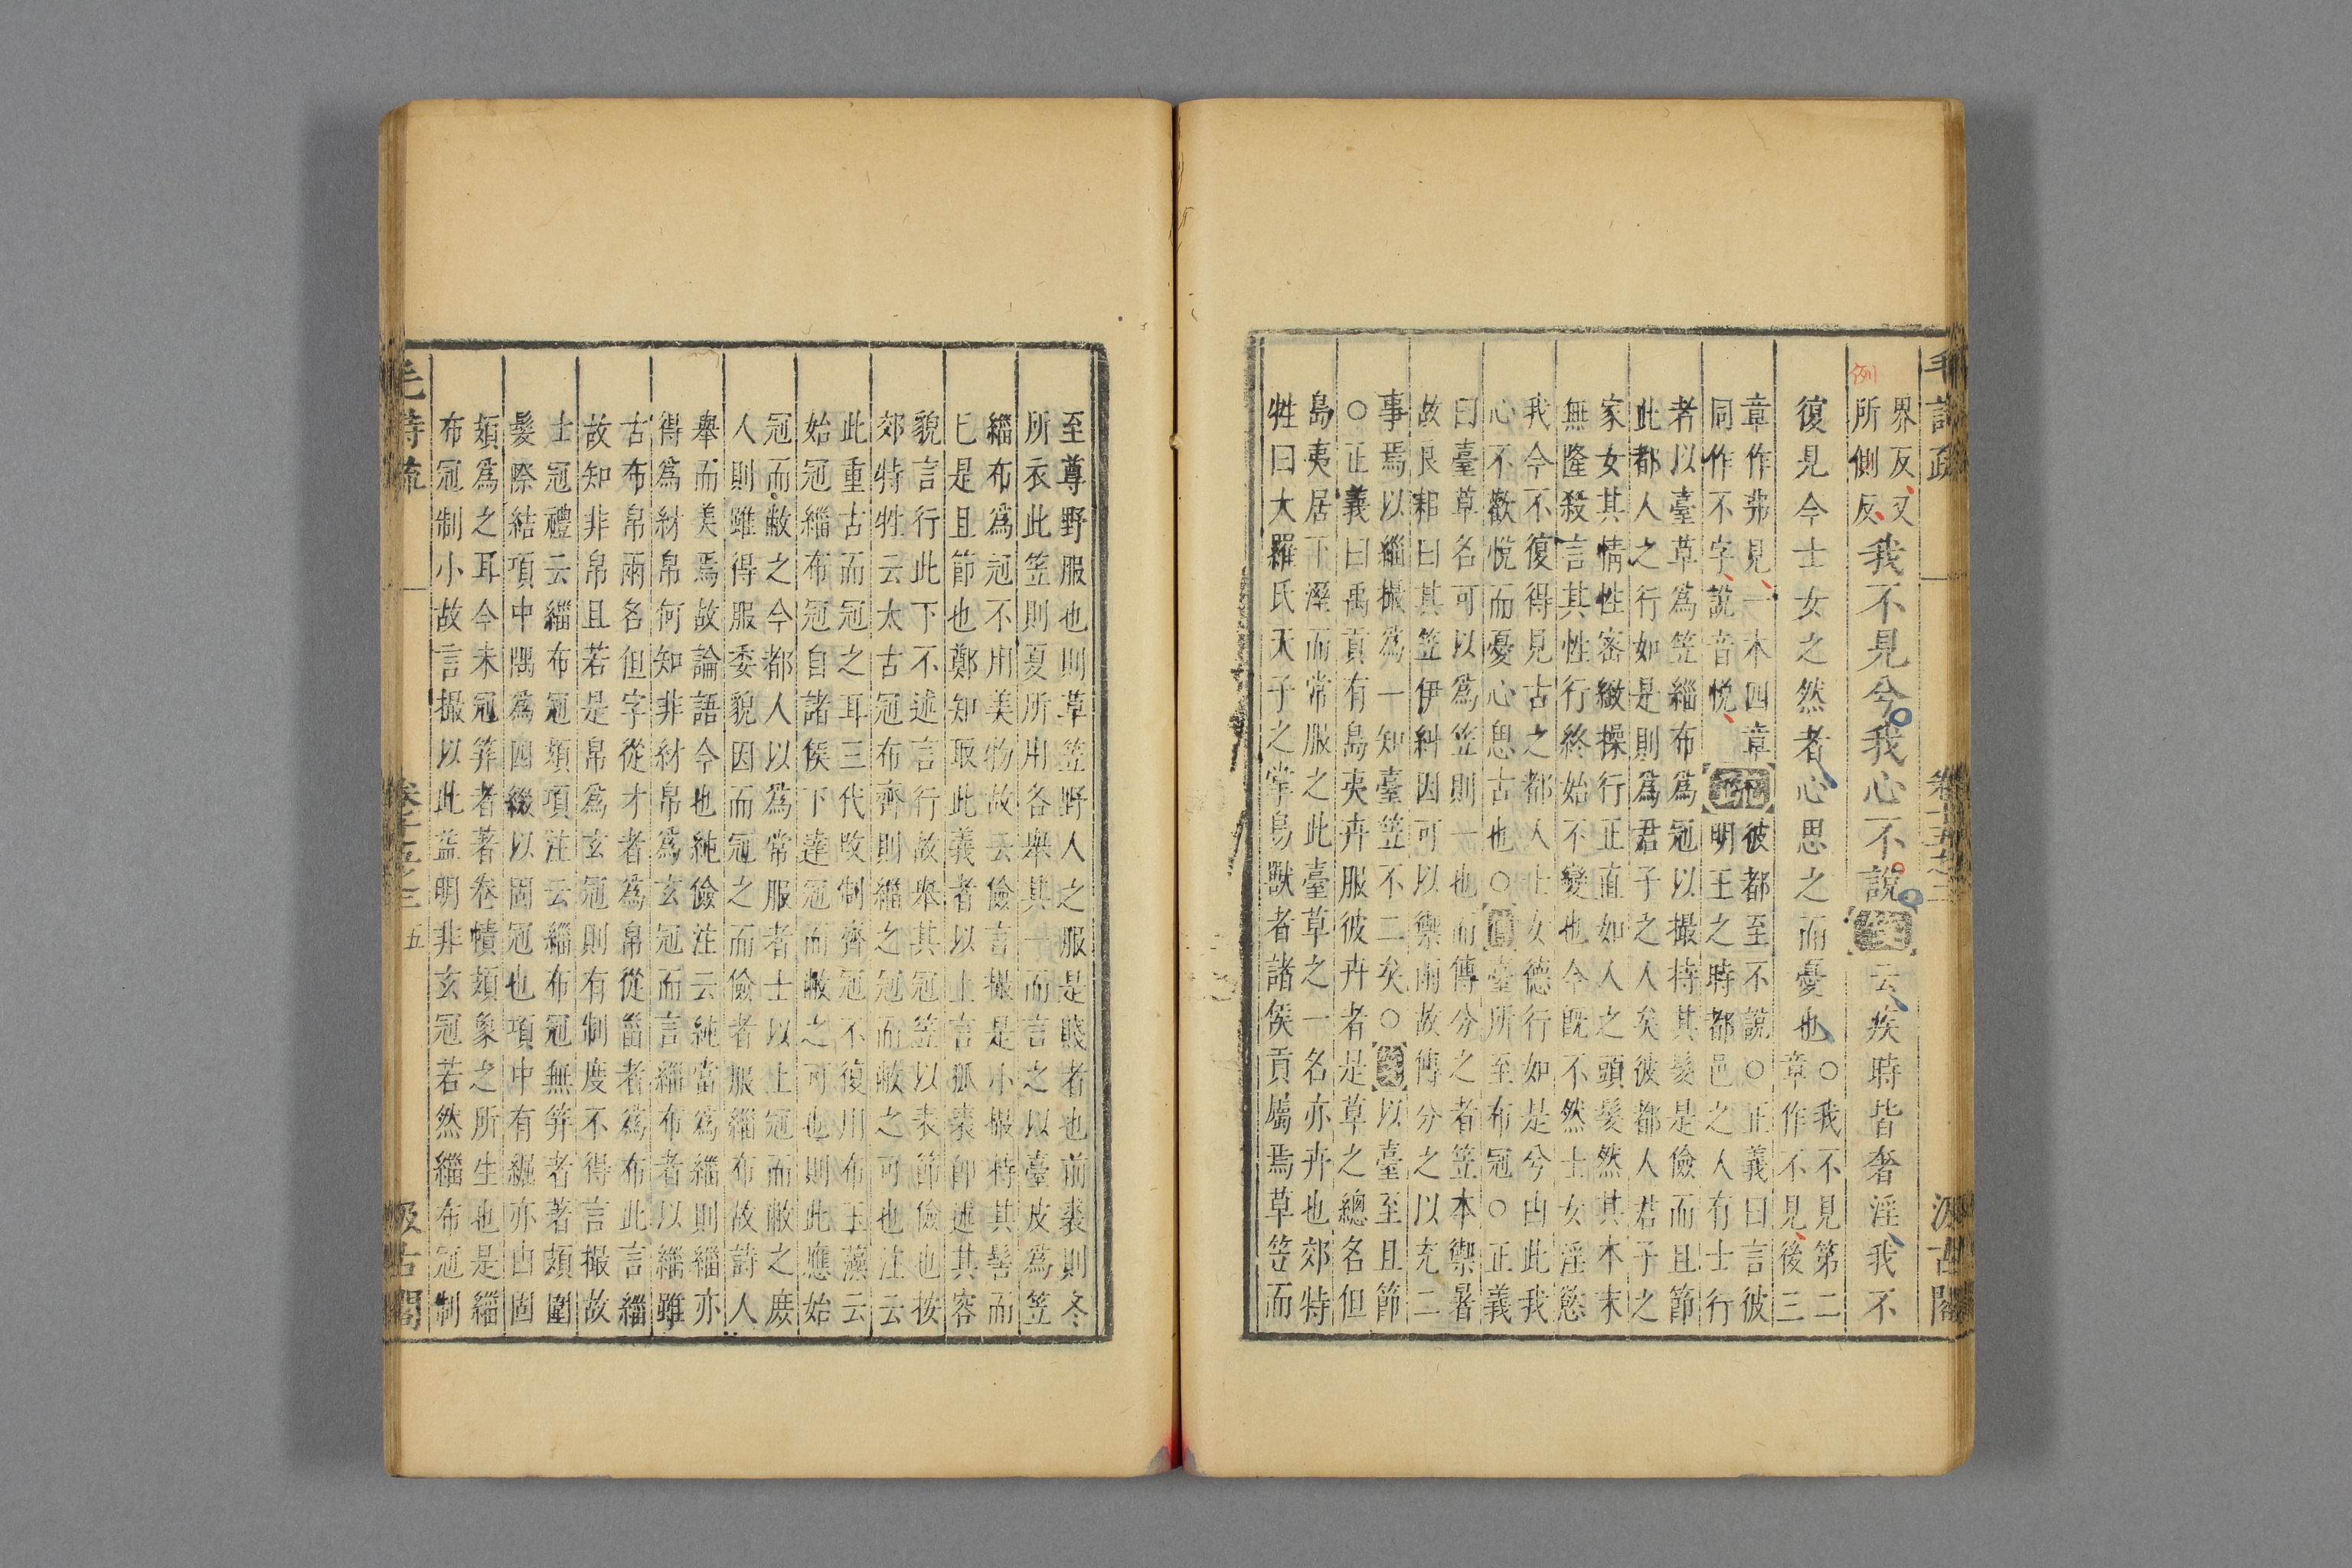 毛詩疏
卷十五之二
汲古閣
例
界反又
所側反
我不見兮我心不說
云疾時皆奢淫我不
復見今士女之然者心思之而憂也
○我不見第二
章作不見後三
章作弗見一本四章
同作不字說音悅
疏
彼都至不說○正義曰言彼
明王之時都邑之人有士行
者以臺草爲笠緇布爲冠以撮持其髮是儉而且節
此都人之行如是則爲君子之人矣彼都人君子之
家女其情性密緻操行正直如人之頭髮然其本末
無隆殺言其性行終始不變也今既不然士女淫慾
我今不復得見古之都人士女德行如是兮由此我
心不歡悅而憂心思古也○
臺所至布冠○正義
曰臺草名可以爲笠則一也而傳分之者笠本禦暑
故良耜曰其笠伊糾因可以禦雨故傳分之以充二
事焉以緇撮爲一知臺笠不二矣○
以臺至且節
○正義曰禹貢有島夷卉服彼卉者是草之總名但
島夷居下溼而常服之此臺草之一名亦卉也郊特
牲曰大羅氏天子之掌鳥獸者諸侯貢屬焉草笠而
至尊野服也則草笠野人之服是賤者也前裘則冬
所衣此笠則夏所用各舉其一而言之以臺皮爲笠
緇布爲冠不用美物故云儉言撮是小撮持其髻而
已是且節也鄭知取此義者以上言狐裘卽述其容
貌言行此下不述言行故舉其冠笠以表節儉也按
郊特牲云太古冠布齊則緇之冠而敝之可也注云
此重古而冠之耳三代改制齊冠不復用布玉藻云
始冠緇布冠自諸侯下達冠而敝之可也則此應始
冠而敝之今都人以爲常服者士以上冠而敝之庶
人則雖得服委貌因而冠之而儉者服緇布故詩人
舉而美焉故論語今也純儉注云純當爲緇則緇亦
得爲紂帛何知非紂帛爲玄冠而言緇布者以緇雖
古布帛兩名但字從才者爲帛從甾者爲布此言緇
故知非帛且若是帛爲玄冠則有制度不得言撮故
士冠禮云緇布冠頍項注云緇布冠無笄者著頍圍
髮際結項中隅爲四綴以固冠也項中有𦃢亦由固
頍爲之耳今未冠笄者著卷幘頍象之所生也是緇
布冠制小故言撮以此益明非玄冠若然緇布冠制
毛詩疏
卷十五之二
五
汲古閣